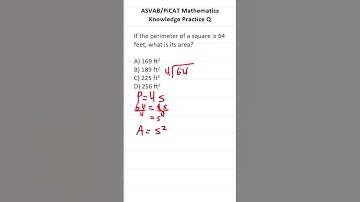 ASVAB/PiCAT Mathematics
Knowledge Practice Q
If the perimeter of a square is 64
feet, what is its area?
A) 169 ft²
B) 189 ft²
C) 225 ft²
D) 256 ft²
4√64
P=4s
64/4 = 4s/4
= s
A= s²